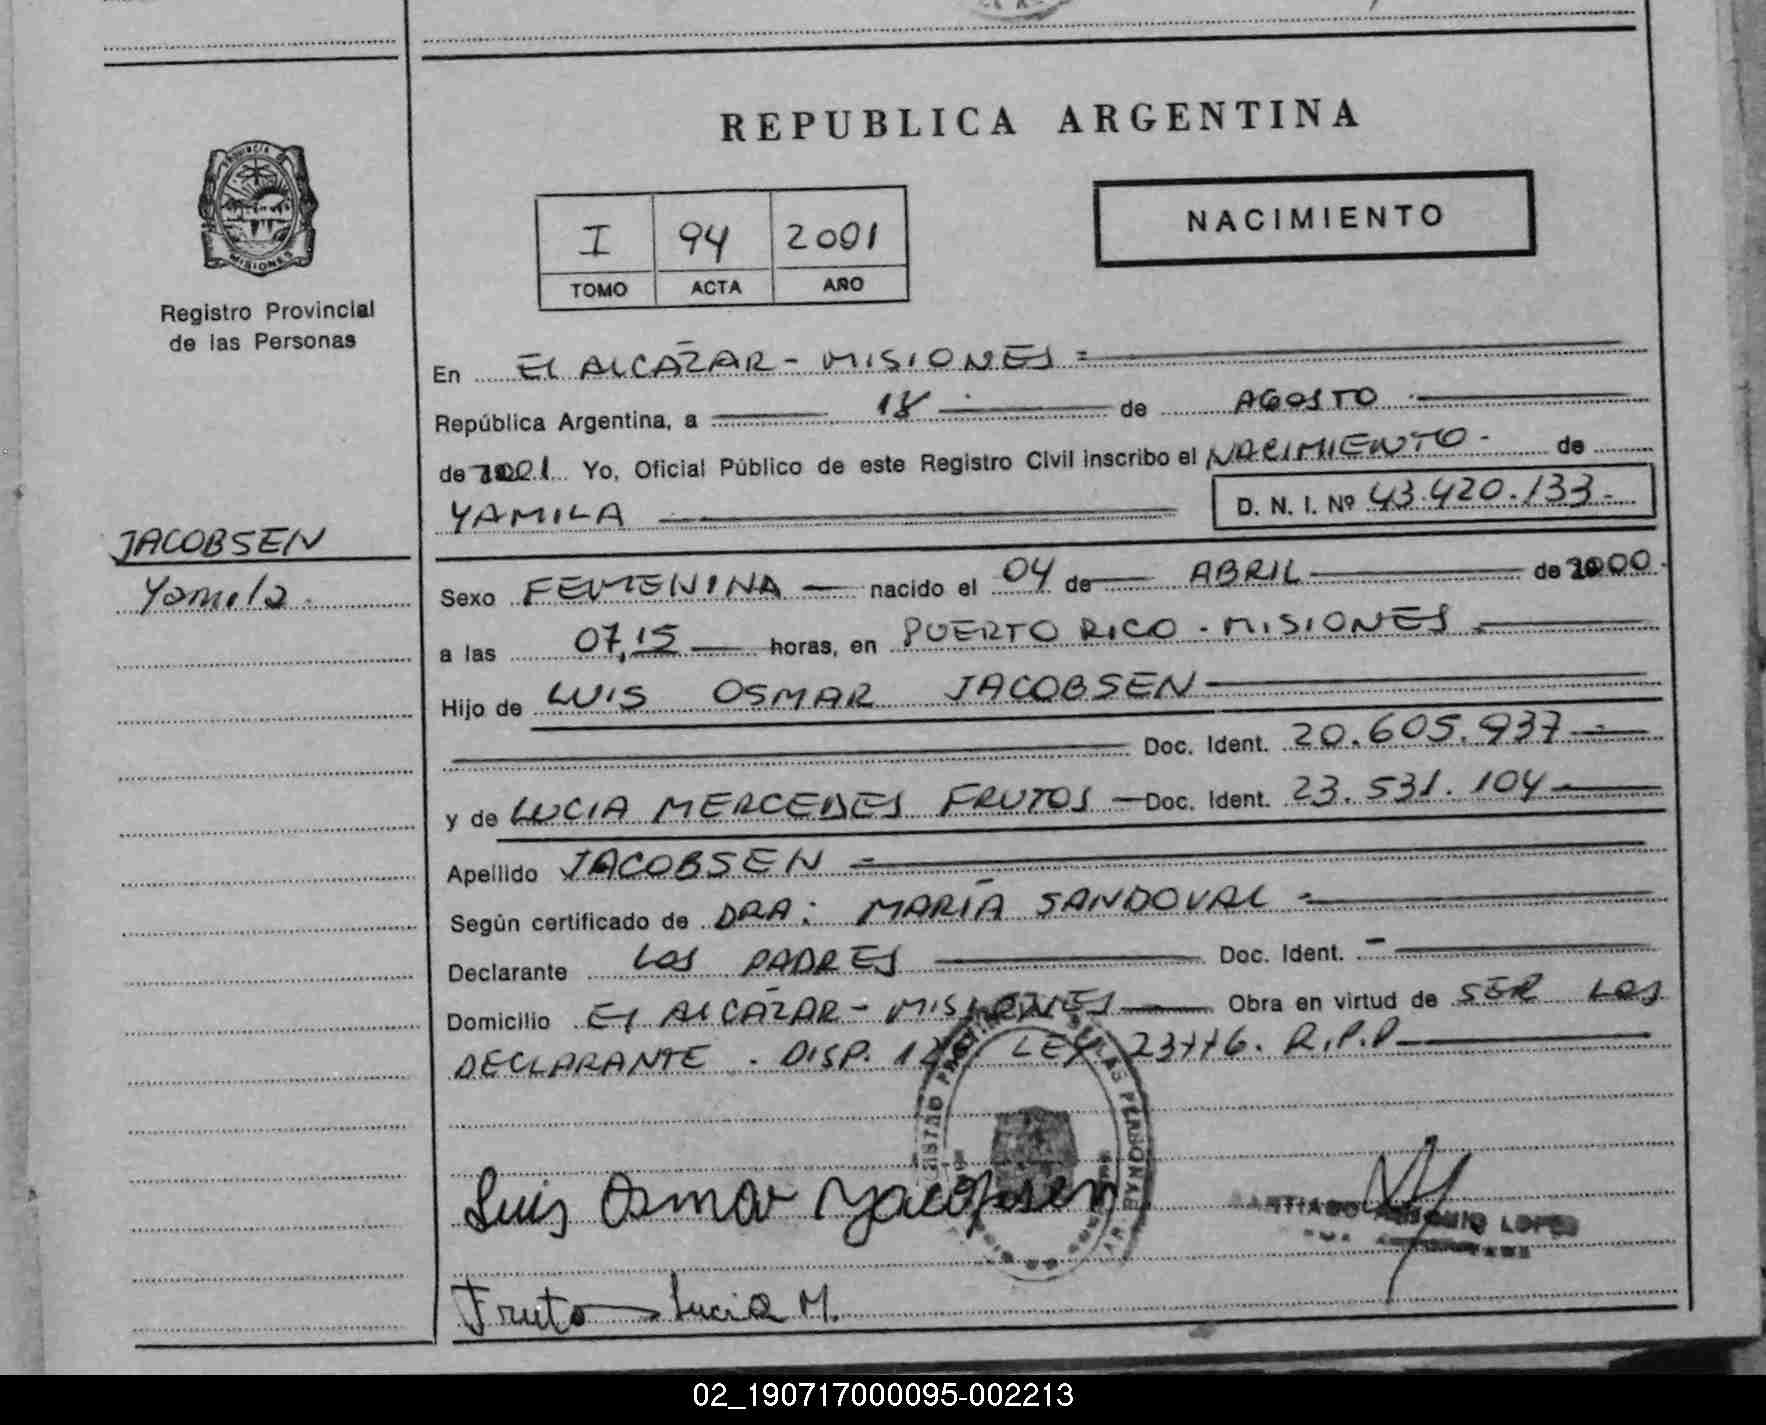 REPUBLICA ARGENTINA
PROVINCIA DE
MISIONES
Registro Provincial
de las Personas
I 94 2001
TOMO ACTA AÑO
NACIMIENTO
En EL ALCAZAR - MISIONES =
República Argentina, a 18 de AGOSTO
de 2001 Yo, Oficial Público de este Registro Civil inscribo el NACIMIENTO - de
YAMILA D. N. I. Nº 43.420.133-
JACOBSEN
Yamila
Sexo FEMENINA — nacido el 04 de ABRIL de 2000.
a las 07,15 horas, en PUERTO RICO - MISIONES
Hijo de LUIS OSMAR JACOBSEN
Doc. Ident. 20.605.937
y de LUCIA MERCEDES FRUTOS — Doc. Ident. 23.531.104
Apellido JACOBSEN
Según certificado de DRA: MARÍA SANDOVAL
Declarante LOS PADRES Doc. Ident. -
Domicilio EL ALCAZAR - MISIONES Obra en virtud de SER LOS
DECLARANTE . DISP. LEY 23776. R.P.P
Luis Osmar Yacobsen
SANTIAGO LOPEZ
Frutos Lucia M.
02_190717000095-002213